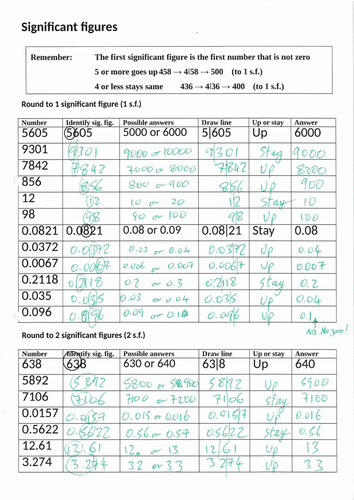 Significant figures
Remember: The first significant figure is the first number that is not zero
5 or more goes up 458 → 4|58 → 500 (to 1 s.f.)
4 or less stays same 436 → 4|36 → 400 (to 1 s.f.)
Round to 1 significant figure (1 s.f.)
Number Identify sig. fig. Possible answers Draw line Up or stay Answer
5605 5605 5000 or 6000 5|605 Up 6000
9301 9301 9000 or 10000 9|301 Stay 9000
7842 7842 7000 or 8000 7|842 Up 8000
856 856 800 or 900 8|56 Up 900
12 12 10 or 20 1|2 Stay 10
98 98 90 or 100 9|8 Up 100
0.0821 0.0821 0.08 or 0.09 0.08|21 Stay 0.08
0.0372 0.0372 0.03 or 0.04 0.03|72 Up 0.04
0.0067 0.0067 0.006 or 0.007 0.006|7 Up 0.007
0.2118 0.2118 0.2 or 0.3 0.2|118 Stay 0.2
0.035 0.035 0.03 or 0.04 0.03|5 Up 0.04
0.096 0.096 0.09 or 0.10 0.09|6 Up 0.1
No zero!
Round to 2 significant figures (2 s.f.)
Number Identify sig. fig. Possible answers Draw line Up or stay Answer
638 638 630 or 640 63|8 Up 640
5892 5892 5800 or 5900 58|92 Up 5900
7106 7106 7100 or 7200 71|06 Stay 7100
0.0157 0.0157 0.015 or 0.016 0.015|7 Up 0.016
0.5622 0.5622 0.56 or 0.57 0.56|22 Stay 0.56
12.61 12.61 12 or 13 12|.61 Up 13
3.274 3.274 3.2 or 3.3 3.2|74 Up 3.3